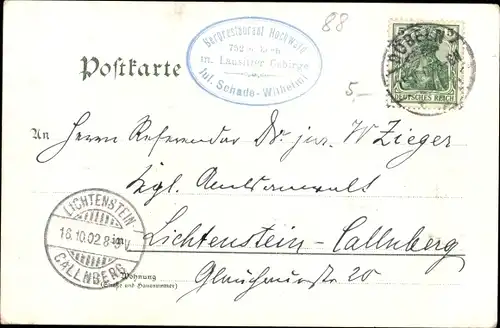 88
Bergrestaurant Hochwald
752 m hoch
im Lausitzer Gebirge
Jul. Schade-Wilhelmi
DÖBELN
DEUTSCHES REICH
5,-
Postkarte
An Herrn Referendar Dr. jur. W Zieger
Kgl. Amtsanwalt
LICHTENSTEIN
16.10.02 8-9 V.
CALLNBERG
in Lichtenstein-Callnberg
Wohnung
(Straße und Hausnummer)
Glauchauerstraße 20